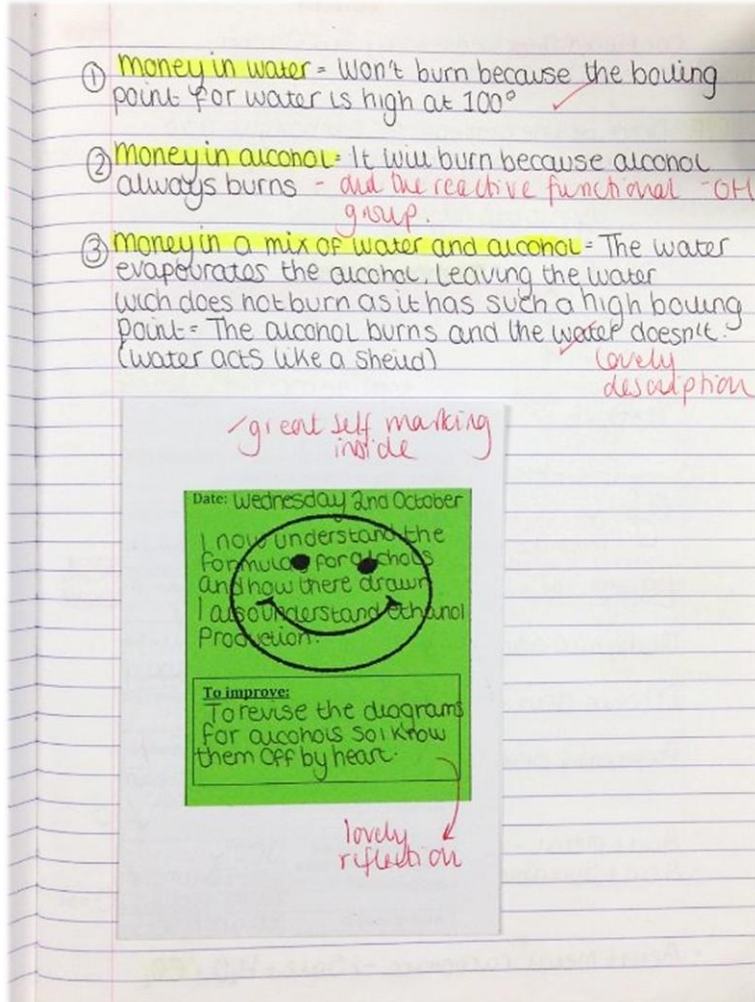 ① Money in water = Won't burn because the boiling
point for water is high at 100°
② Money in alcohol = It will burn because alcohol
always burns - and the reactive functional -OH
group.
③ Money in a mix of water and alcohol = The water
evapourates the alcohol, leaving the water
wich does not burn as it has such a high boiling
point = The alcohol burns and the water doesn't.
(water acts like a sheild)
lovely
description
great self marking
inside
Date: Wednesday 2nd October
I now understand the
formulas for alchols
and how there drawn
I also understand ethanol
Production.
To improve:
To revise the diagrams
for alcohols so I know
them off by heart.
lovely
reflection